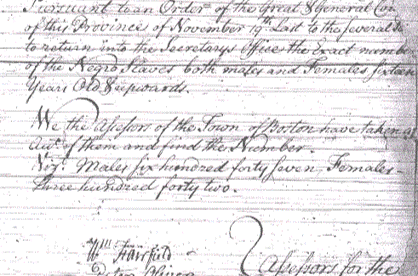 Pursuant to an Order of the Great & General Cou
of this Province of November 19th Last to the several
to return into the Secretarys Office the Exact number
of the Negro Slaves both males and Females sixteen
Years Old & upwards.
We the Assessors of the Town of Boston have taken an
Acct. of them and find the Number
Viz: Males six hundred forty seven, Females
three hundred forty two.
Wm: Fairfield
Assessors for the